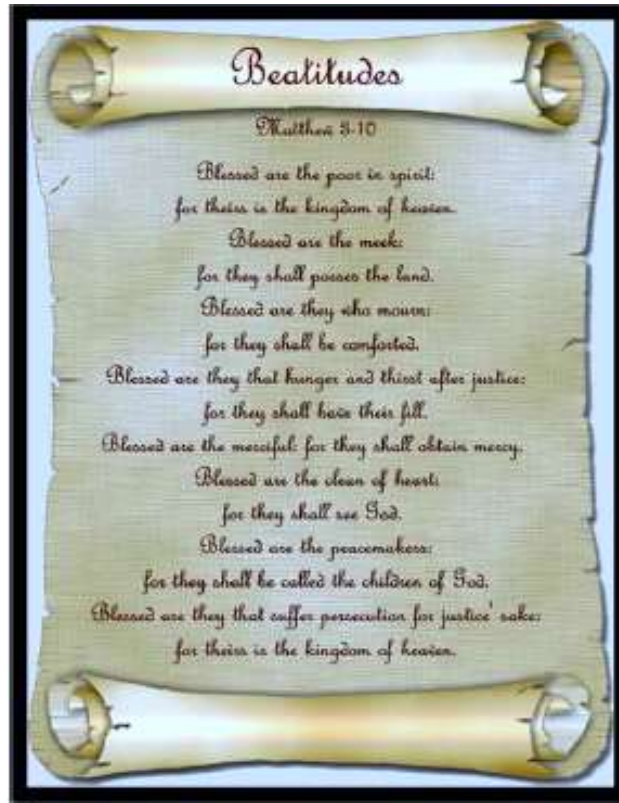 Beatitudes
Matthew 5-10
Blessed are the poor in spirit:
for theirs is the kingdom of heaven.
Blessed are the meek:
for they shall posses the land.
Blessed are they who mourn:
for they shall be comforted.
Blessed are they that hunger and thirst after justice:
for they shall have their fill.
Blessed are the merciful: for they shall obtain mercy.
Blessed are the clean of heart:
for they shall see God.
Blessed are the peacemakers:
for they shall be called the children of God.
Blessed are they that suffer persecution for justice' sake:
for theirs is the kingdom of heaven.